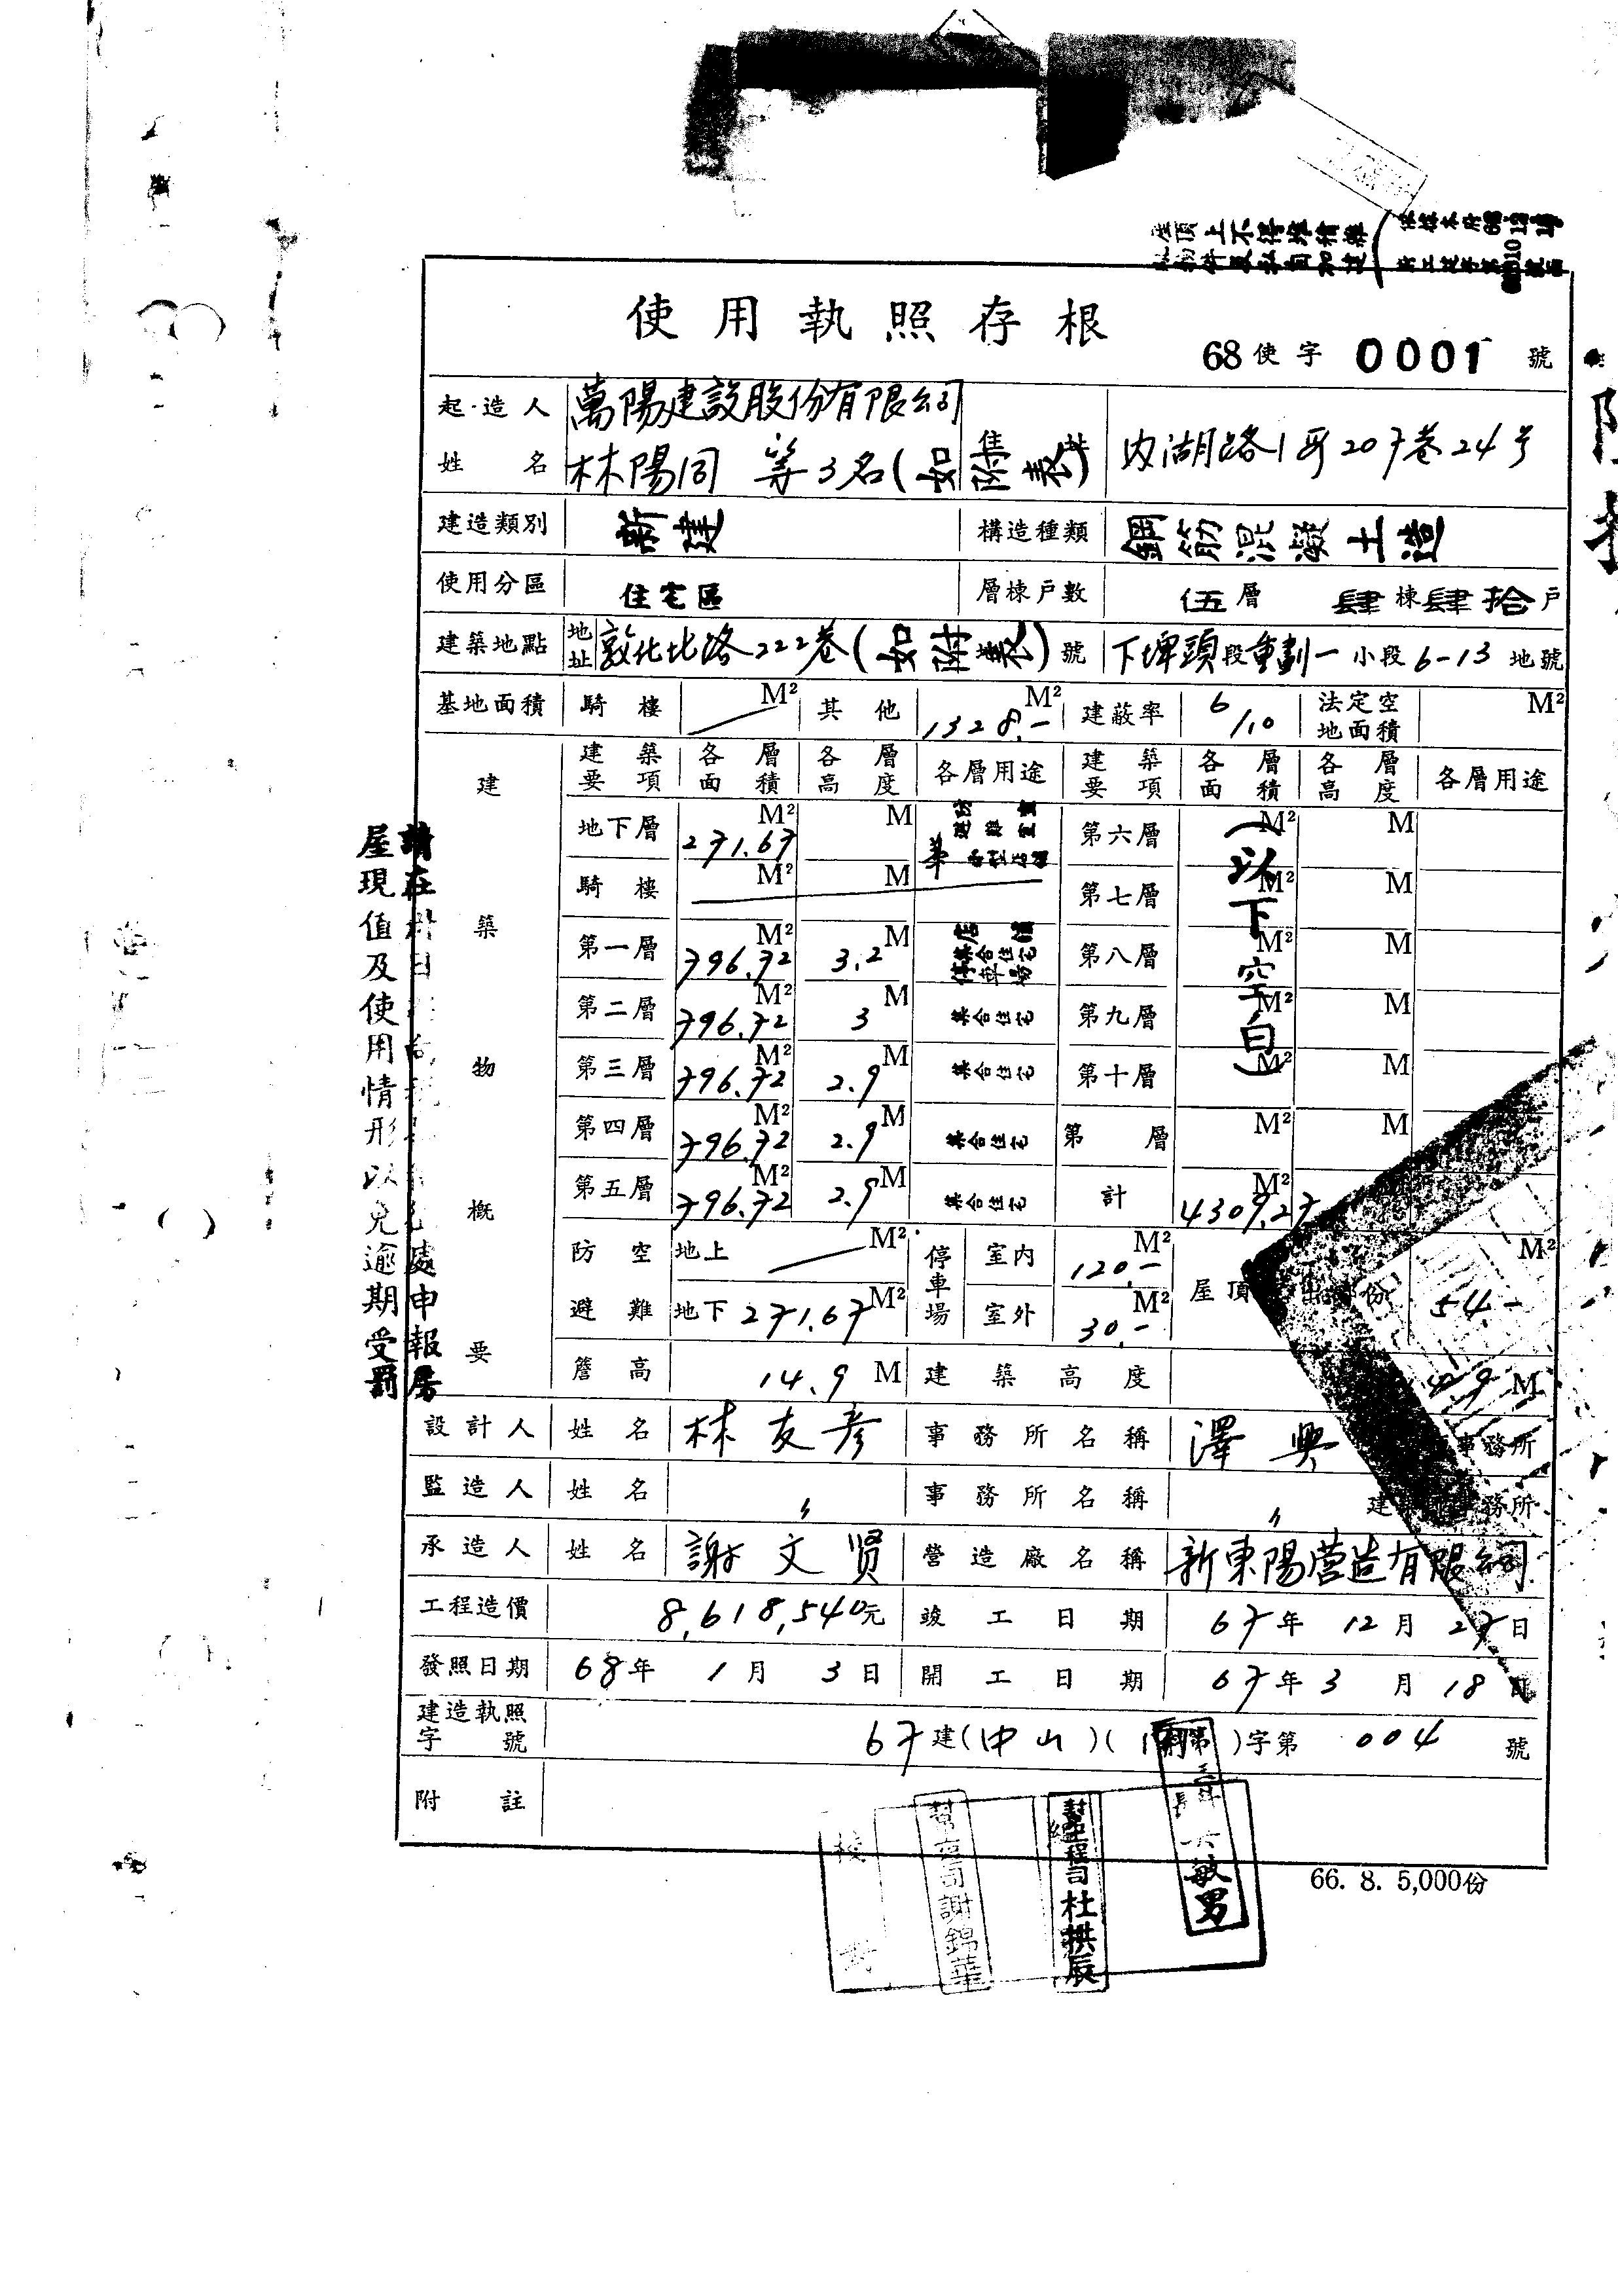 屋頂上不得堆積雜
使用執照存根
68使字 0001 號
起造人姓名 萬陽建設股份有限公司 林陽同 等3名(如附表) 住址 內湖路1段207巷24号
建造類別 新建 構造種類 鋼筋混凝土造
使用分區 住宅區 層棟戶數 伍層 肆棟肆拾戶
建築地點 地址 敦化北路222巷(如附表)號 下埤頭段重劃一小段6-13地號
基地面積 騎樓 M² 其他 1328.- M² 建蔽率 6/10 法定空地面積 M²
建築物概要
建築要項 各層面積 各層高度 各層用途 建築要項 各層面積 各層高度 各層用途
地下層 271.67 M² M 第六層 M² M
騎樓 M² M 第七層 M² M
第一層 796.72 M² 3.2 M 店舖 集合住宅 停車場 第八層 M² M
第二層 796.72 M² 3 M 集合住宅 第九層 M² M
第三層 796.72 M² 2.9 M 集合住宅 第十層 M² M
第四層 796.72 M² 2.9 M 集合住宅 第 層 M² M
第五層 796.72 M² 2.9 M 集合住宅 計 4309.27 M²
(以下空白)
防空避難 地上 M² 停車場 室內 120.- M² 屋頂 份 54.- M²
地下 271.67 M² 室外 30.- M²
簷高 14.9 M 建築高度 M
設計人 姓名 林友彥 事務所名稱 澤興 事務所
監造人 姓名 〃 事務所名稱 〃 建 務所
承造人 姓名 謝文賢 營造廠名稱 新東陽營造有限公司
工程造價 8,618,540元 竣工日期 67年12月27日
發照日期 68年1月3日 開工日期 67年3月18日
建造執照字號 67建(中山)( )字第004號
附註
請在 處申報房
屋現值及使用情形以免逾期受罰
幫工程司謝錦華
幫工程司杜拱辰
敏男
66. 8. 5,000份